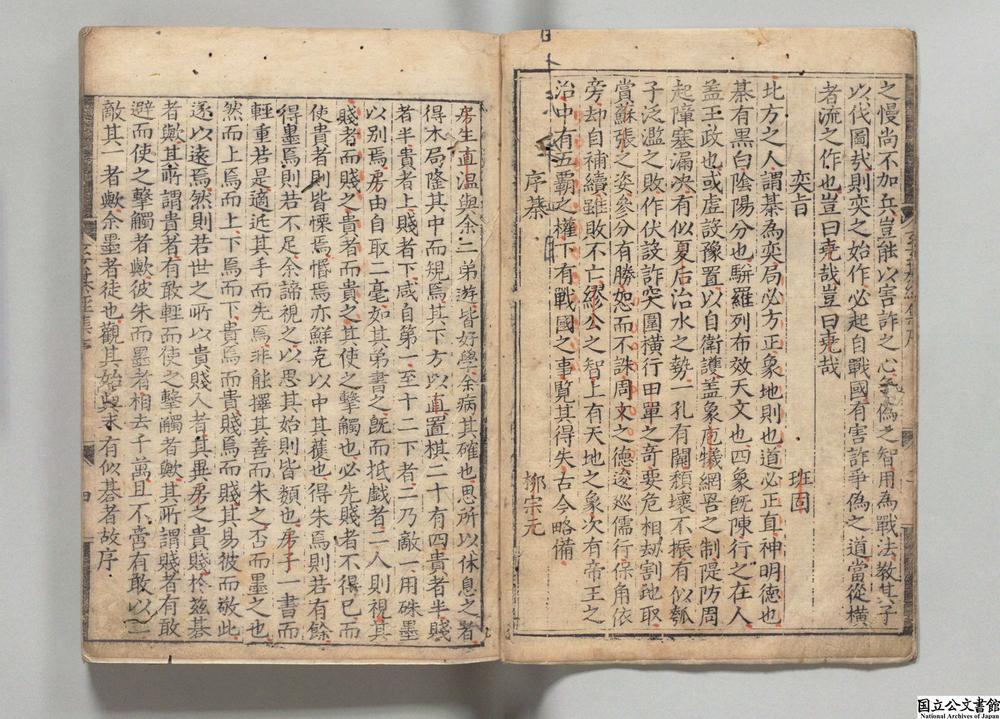 之慢尚不加兵豈能以害詐之心爭偽之智用為戰法教其子
以代圖哉則奕之始作必起自戰國有害詐爭偽之道當從橫
者流之作也豈曰堯哉豈曰堯哉
奕旨 班固
北方之人謂棊為奕局必方正象地則也道必正直神明德也
棊有黑白陰陽分也駢羅列布效天文也四象既陳行之在人
盖王政也或虛設豫置以自衛護盖象庖犧網罟之制隄防周
起障塞漏决有似夏后治水之勢一孔有闕頹壞不振有似瓠
子泛濫之敗作伏設詐突圍橫行田單之奇要危相劫割地取
賞蘇張之姿參分有勝恕而不誅周文之德逡巡儒行保角依
旁却自補續雖敗不亡繆公之智上有天地之象次有帝王之
治中有五覇之權下有戰國之事覧其得失古今略備
序棊 柳宗元
房生直温與余二弟遊皆好學余病其確也思所以休息之者
得木局隆其中而規焉其下方以直置棋二十有四貴者半賤
者半貴者上賤者下咸自第一至十二下者二乃敵一用硃墨
以別焉房由自取二毫如其弟書之既而抵戲者二人則視其
賤者而賤之貴者而貴之其使之擊觸也必先賤者不得已而
使貴者則皆慄焉惛焉亦鮮克以中其獲也得朱焉則若有餘
得墨焉則若不足余諦視之以思其始則皆類也房子一書而
輕重若是適近其手而先焉非能擇其善而朱之否而墨之也
然而上焉而上下焉而下貴焉而貴賤焉而賤其易彼而敬此
遂以遠焉然則若世之所以貴賤人者有異房之貴賤於兹棊
者歟其所謂貴者有敢輕而使之擊觸者歟其所謂賤者有敢
避而使之擊觸者歟彼朱而墨者相去千萬且不啻有敢以二
敵其一者歟余墨者徒也觀其始與末有似棊者故序
四
国立公文書館
National Archives of Japan